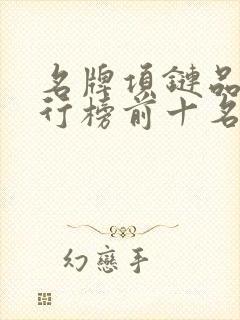 名牌項鏈品
行榜前十名
幻戀手